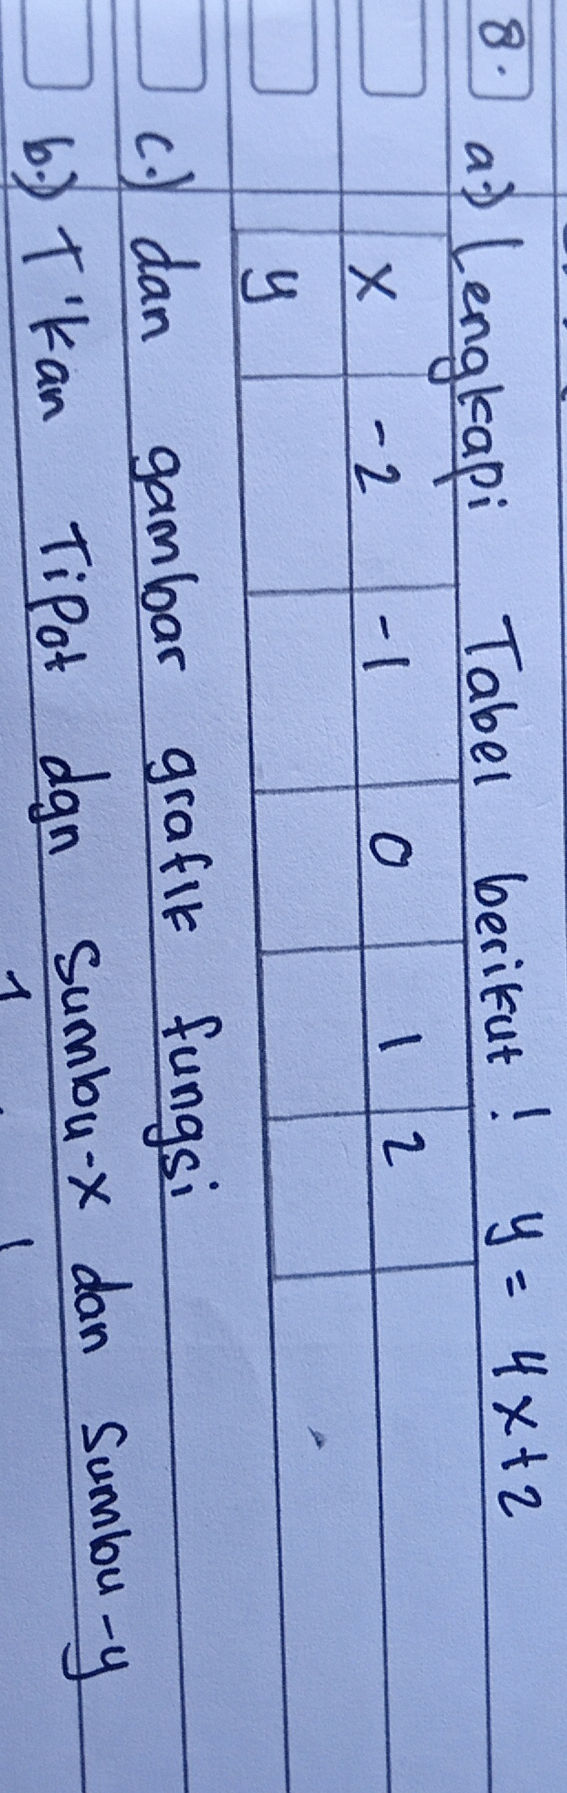 8. a.) Lengkapi Tabel berikut! y = 4x+2
x -2 -1 0 1 2
y
c.) dan gambar grafik fungsi
b.) T'kan TiPot dgn Sumbu-x dan Sumbu-y